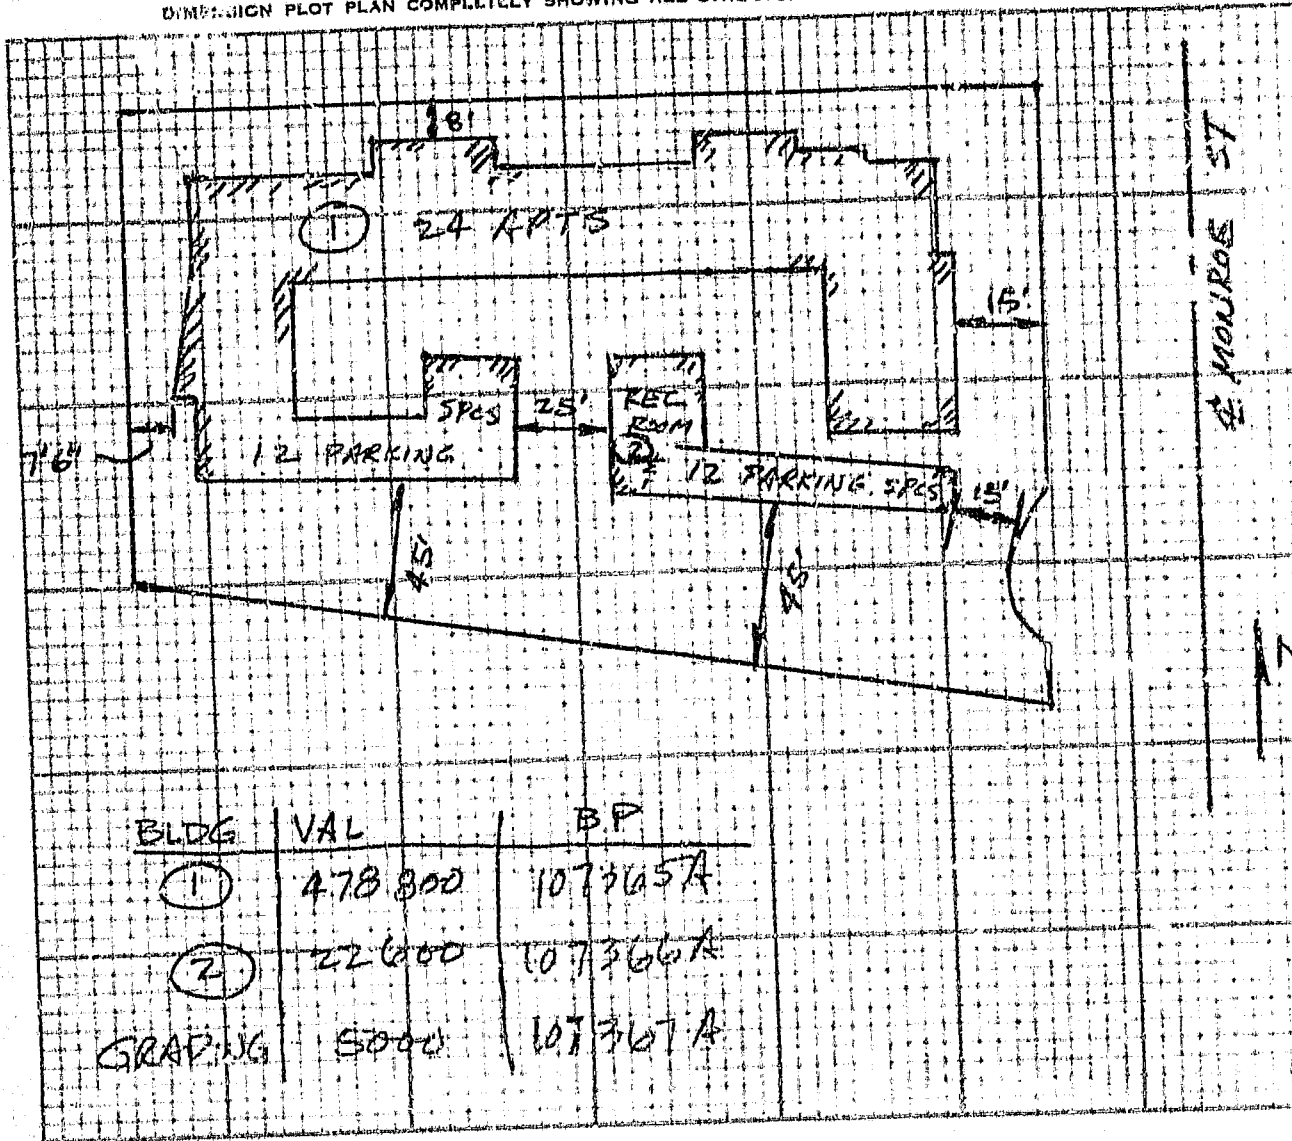 DIMENSION PLOT PLAN COMPLETELY SHOWING ALL
8'
① 24 APTS
15'
℄ MONROE ST
SPCS
25'
REC
ROOM
②
7'6"
12 PARKING
12 PARKING SPCS
15'
45'
45'
BLDG VAL B.P
① 478 800 107365A
② 22600 107366A
GRADING 5000 107367A